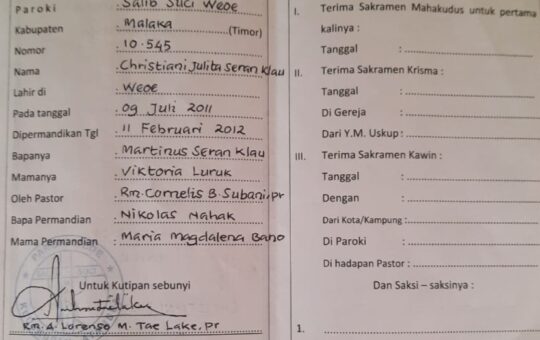 Paroki : Salib Suci Weoe
Kabupaten : Malaka (Timor)
Nomor : 10.545
Nama : Christiani Julita Seran Klau
Lahir di : Weoe
Pada tanggal : 09 Juli 2011
Dipermandikan Tgl : 11 Februari 2012
Bapanya : Martinus Seran Klau
Mamanya : Viktoria Luruk
Oleh Pastor : Rm. Cornelis B. Subani, pr
Bapa Permandian : Nikolas Nahak
Mama Permandian : Maria Magdalena Bano
Untuk Kutipan sebunyi
Rm. A. Lorenso M. Tae Lake, pr
I. Terima Sakramen Mahakudus untuk pertama
kalinya :
Tanggal :
II. Terima Sakramen Krisma :
Tanggal :
Di Gereja :
Dari Y.M. Uskup :
III. Terima Sakramen Kawin :
Tanggal :
Dengan :
Dari Kota/Kampung :
Di Paroki :
Di hadapan Pastor :
Dan Saksi – saksinya :
1.